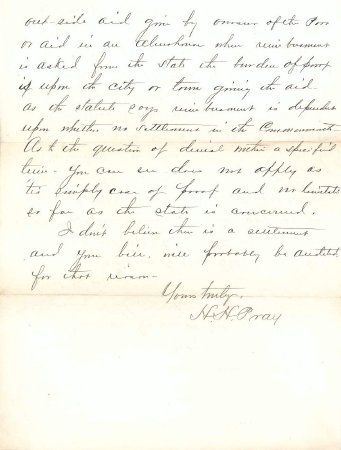 out-side aid given by overseer of the Poor
or aid in an Almshouse when reimbursement
is asked from the State the burden of proof
is upon the city or town giving the aid
as the statute says reimbursement is dependent
upon whether no settlement in the Commonwealth-
As to the question of denial within a specified
time. You can see does not apply as
'tis simply case of proof and no
so far as the state is concerned.
I don't believe there is a settlement
and your bill will probably be audited
for that reason-
Yours truly,
H. H. Pray